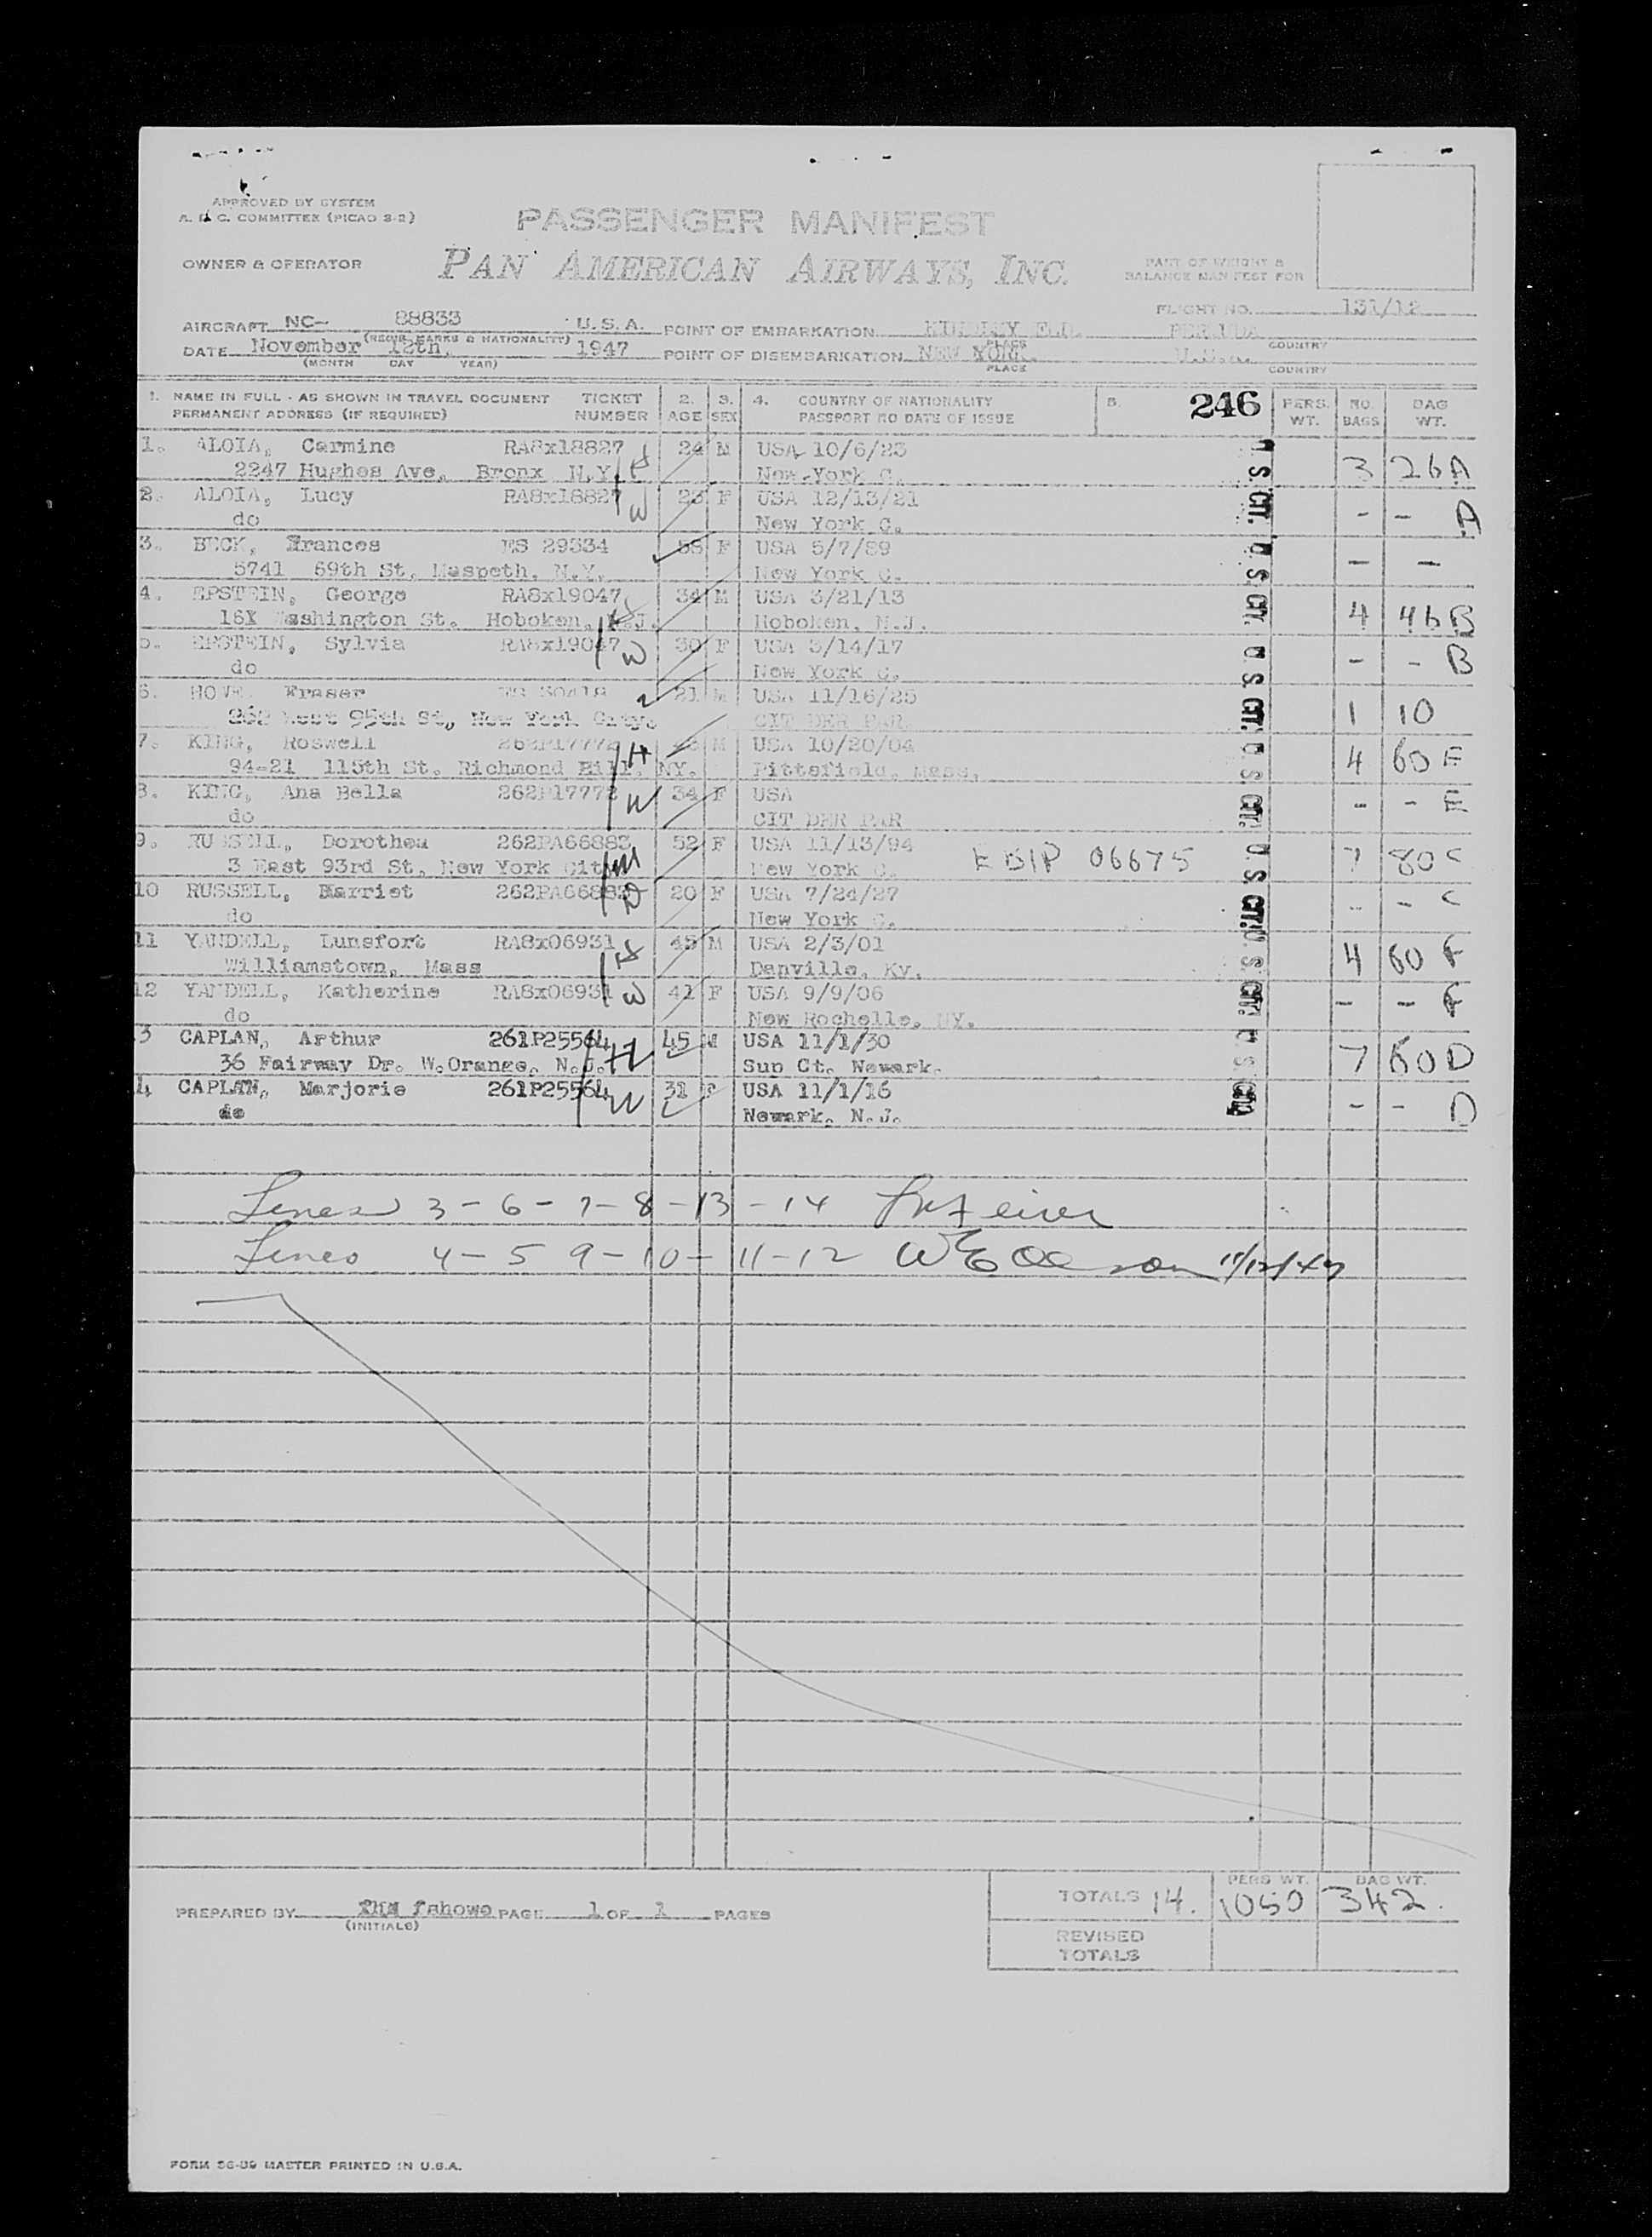 APPROVED BY SYSTEM
A. & C. COMMITTEE (PICAO 3-2)
PASSENGER MANIFEST
OWNER & OPERATOR
PAN AMERICAN AIRWAYS, INC.
PART OF WEIGHT &
BALANCE MANIFEST FOR
FLIGHT NO. 131/12
AIRCRAFT NC- 88833 U.S.A. POINT OF EMBARKATION
(REGIS. MARKS & NATIONALITY) PLACE COUNTRY
DATE November 12th, 1947 POINT OF DISEMBARKATION NEW YORK. U.S.A.
(MONTH DAY YEAR) PLACE COUNTRY
1. NAME IN FULL - AS SHOWN IN TRAVEL DOCUMENT TICKET 2. 3. 4. COUNTRY OF NATIONALITY 5. 246 PERS. NO. BAG
PERMANENT ADDRESS (IF REQUIRED) NUMBER AGE SEX PASSPORT NO DATE OF ISSUE WT. BAGS WT.
1. ALOIA, Carmine RA8x18827 24 M USA 10/6/23 U.S. CIT.
2247 Hughes Ave, Bronx N.Y. H New York C. 3 26A
2. ALOIA, Lucy RA8x18827 W 23 F USA 12/13/21
do New York C. - - A
3. BECK, Frances 29334 58 F USA 5/7/89 U.S. CIT.
5741 69th St, Maspeth, N.Y. New York C. - -
4. EPSTEIN, George RA8x19047 34 M USA 3/21/13
Washington St. Hoboken, N.J. H Hoboken, N.J. 4 46B
5. EPSTEIN, Sylvia RA8x19047 W 30 F USA 3/14/17 U.S. CIT.
do New York C. - - B
6. Fraser 21 M USA 11/16/25
262 West 95th St, New York City. CIT DER PAR 1 10
7. KING, Roswell 262P17772 H M USA 10/20/04 U.S. CIT.
94-21 115th St. Richmond Hill, NY. Pittsfield, Mass. 4 60 E
8. KING, Ana Bella 262P17772 W 34 F USA
do CIT DER PAR - - E
9. RUSSELL, Dorothea 262PA66883 52 F USA 11/13/94 EBIP 06675 U.S. CIT.
3 East 93rd St, New York City M New York C. 7 80 C
10 RUSSELL, Harriet 262PA66883 D 20 F USA 7/24/27
do New York C. - - C
11 YANDELL, Lunsfort RA8x06931 H 45 M USA 2/3/01 U.S. CIT.
Williamstown, Mass Danville, Ky. 4 60 F
12 YANDELL, Katherine RA8x06931 W 41 F USA 9/9/06
do New Rochelle, NY. - - F
3 CAPLAN, Arthur 261P25564 45 M USA 11/1/30 U.S. CIT.
36 Fairway Dr. W.Orange, N.J. H Sup Ct. Newark. 7 60D
4 CAPLAN, Marjorie 261P25564 W 31 F USA 11/1/16
do Newark, N.J. - - D
Lines 3-6-7-8-13-14
Lines 4-5 9-10-11-12 11/12/47
PREPARED BY PAGE 1 OF 1 PAGES
(INITIALS)
PERS WT. BAG WT.
TOTALS 14. 1050 342.
REVISED
TOTALS
FORM 36-09 MASTER PRINTED IN U.S.A.